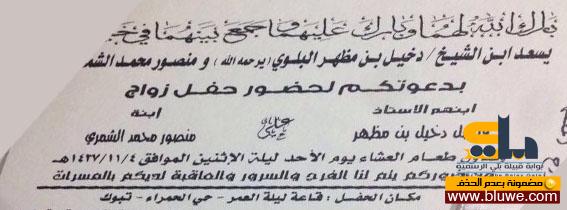 بارك الله لهما وبارك عليهما وجمع بينهما في
يسعد ابن الشيخ / دخيل بن مظهر البلوي (يرحمه الله) و منصور محمد
بدعوتكم لحضور حفل زواج
ابنهم الاستاذ
ابنة
دخيل بن مظهر
على
منصور محمد الشمري
طعام العشاء يوم الأحد ليلة الإثنين الموافق ١٤٣٧/١١/٤هـ
يتم لنا الفرح والسرور والعاقبة لديكم بالمسرات
مكان الحفل : قاعة ليلة العمر - حي الحمراء - تبوك
بلي
بوابة قبيلة بلي الرسمية
مضمونة بعدم الحذف
www.bluwe.com